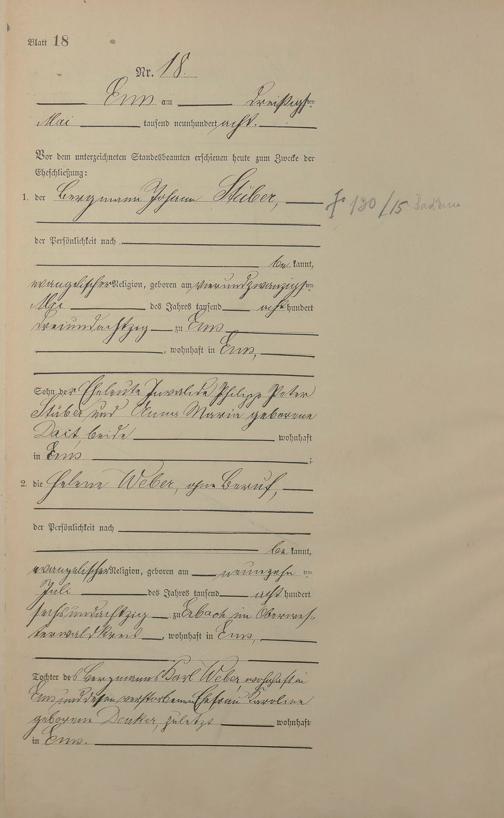 Blatt 18
Nr. 18.
Ems am dreißigsten
Mai tausend neunhundert acht.
Vor dem unterzeichneten Standesbeamten erschienen heute zum Zwecke der
Eheschließung:
1. der Bergmann Johann Stüber,
† 130/15
der Persönlichkeit nach
be kannt,
evangelischer Religion, geboren am vierundzwanzigsten
Mai des Jahres tausend acht hundert
dreiundachtzig zu Ems
, wohnhaft in Ems,
Sohn der Eheleute Invalide Philipp Peter
Stüber und Anna Maria geborene
beide wohnhaft
in Ems ;
2. die Helene Weber, ohne Beruf,
der Persönlichkeit nach
be kannt,
evangelischer Religion, geboren am neunzehnten
Juli des Jahres tausend acht hundert
sechsundachtzig zu Erbach im Oberwes-
terwaldkreis, wohnhaft in Ems,
Tochter des Bergmanns Karl Weber wohnhaft in
Ems und dessen verstorbenen Ehefrau Karoline
geborene zuletzt wohnhaft
in Ems.